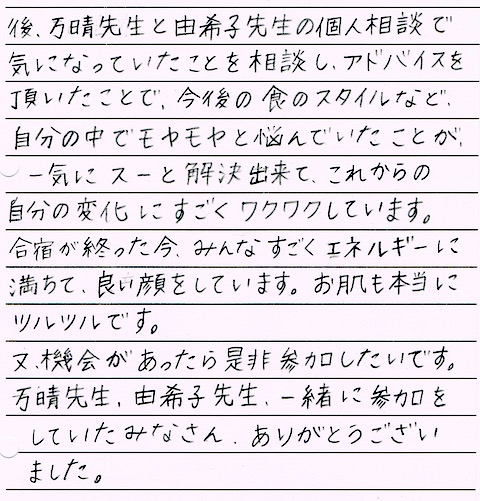 後、万晴先生と由希子先生の個人相談で
気になっていたことを相談し、アドバイスを
頂いたことで、今後の食のスタイルなど、
自分の中でモヤモヤと悩んでいたことが、
一気にスーと解決出来て、これからの
自分の変化にすごくワクワクしています。
合宿が終った今、みんなすごくエネルギーに
満ちて、良い顔をしています。お肌も本当に
ツルツルです。
又、機会があったら是非参加したいです。
万晴先生、由希子先生、一緒に参加を
していたみなさん、ありがとうござい
ました。